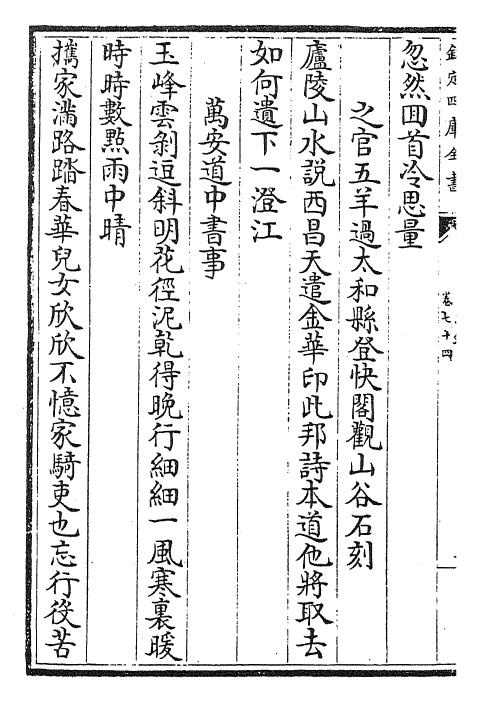 欽定四庫全書
卷七十四
忽然囬首冷思量
之官五羊過太和縣登快閣觀山谷石刻
廬陵山水説西昌天遣金華印此邦詩本道他將取去
如何遺下一澄江
萬安道中書事
玉峰雲剝逗斜明花徑泥乾得晚行細細一風寒裏暖
時時數㸃雨中晴
攜家滿路踏春華兒女欣欣不憶家騎吏也忘行役苦